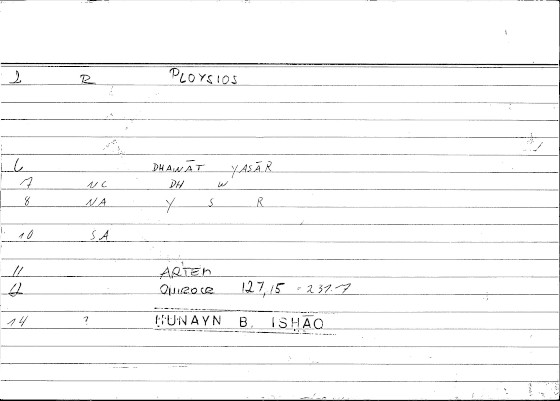 2 R PLOYSIOS
6 DHANĀT YASĀR
7 NC DH W
8 NA Y S R
10 SA
11 ARTEM
12 ONIROCR 127,15 = 231.7
14 ? HUNAYN B. ISHĀQ